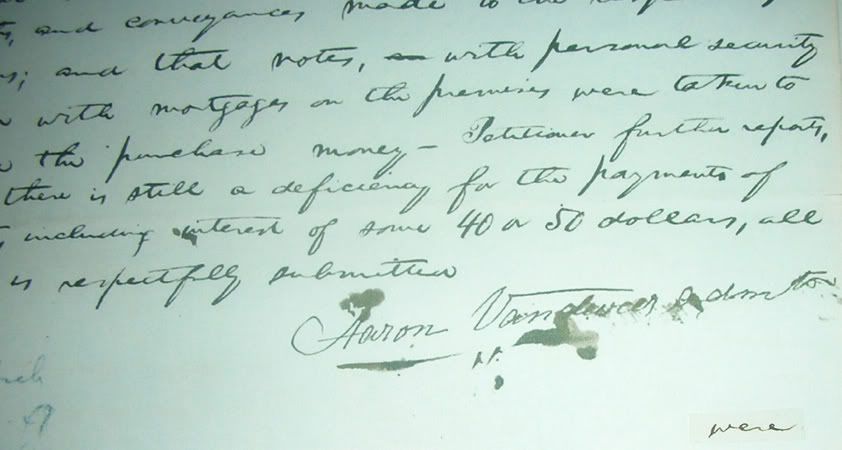 and conveyances made to the
and that notes, with personal security
with mortgages on the premises were taken to
the purchase money – Petitioner further reports,
there is still a deficiency for the payments of
including interest of some 40 or 50 dollars, all
is respectfully submitted
Aaron Vandeveer Admtor
were